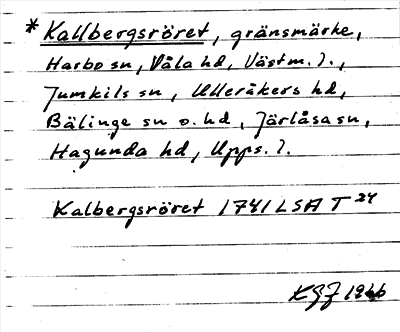 * Kallbergsröret, gränsmärke,
Harbo sn, Våla hd, Västm. l.,
Jumkils sn, Ulleråkers hd,
Bälinge sn o. hd, Järlåsa sn,
Hagunda hd, Upps. l.
Kalbergsröret 1741 LSA T 24
KGJ 1966